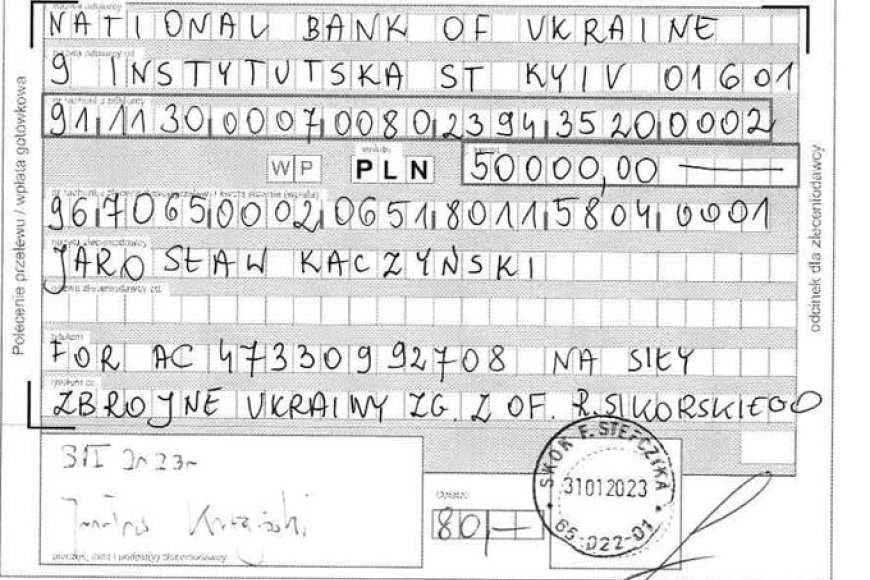 nazwa odbiorcy
NATIONAL BANK OF UKRAINE
nazwa odbiorcy cd.
9 INSTYTUTSKA ST KYIV 01601
nr rachunku odbiorcy
91 1130 0007 0080 2394 3520 0002
WP PLN 50000,00
96 7065 0002 0651 8011 5804 0001
nazwa zleceniodawcy
JAROSŁAW KACZYŃSKI
nazwa zleceniodawcy cd.
tytułem
FOR AC 47330992708 NA SIŁY
tytułem cd.
ZBROJNE UKRAINY ZG. Z OF. R. SIKORSKIEGO
Polecenie przelewu / wpłata gotówkowa
odcinek dla zleceniodawcy
31 I 2023r
pieczęć, data i podpis(y) zleceniodawcy
Opłata:
80,-
SKOK F. STEFCZYKA
31012023
65-D22-01